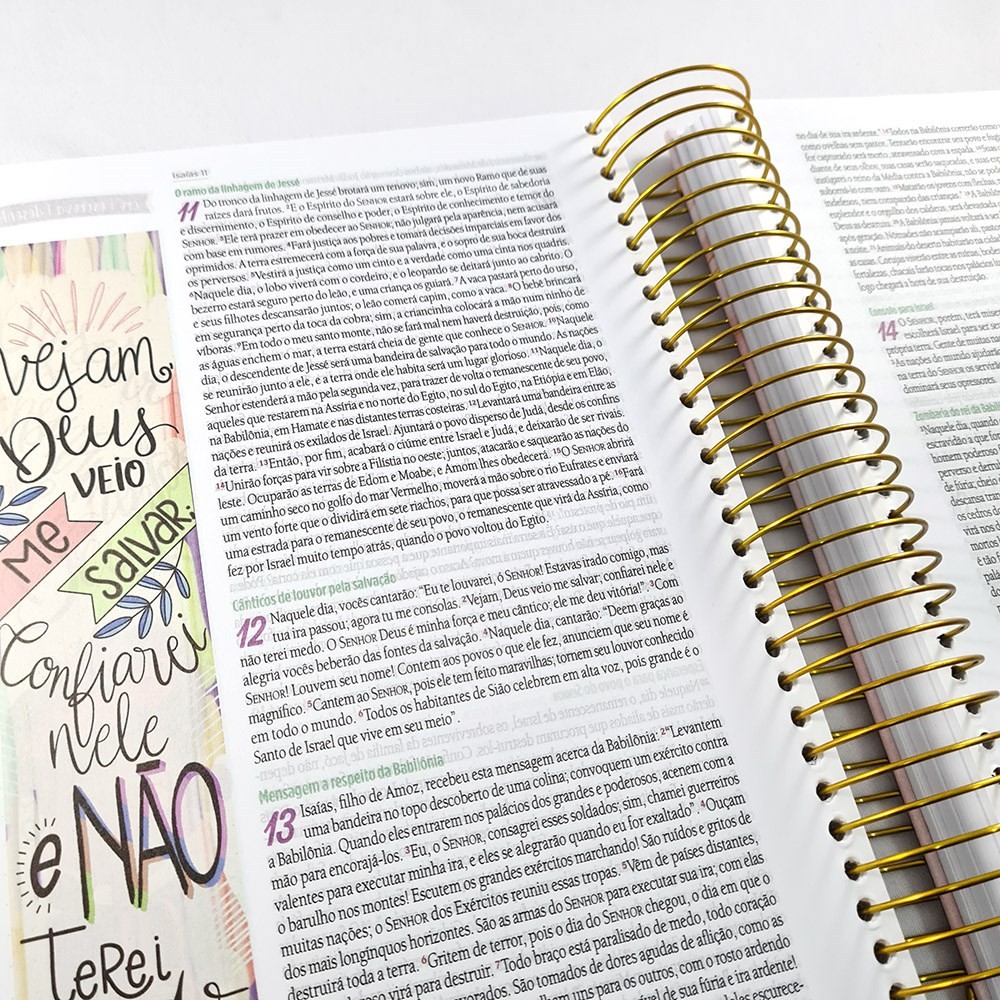 Vejam,
Deus
VEIO
Me
Salvar.
Confiarei
nele
e NÃO
Terei
Isaías 11
O ramo da linhagem de Jessé
11 Do tronco da linhagem de Jessé brotará um renovo; sim, um novo Ramo que de suas
raízes dará frutos. ²E o Espírito do SENHOR estará sobre ele, o Espírito de sabedoria
e discernimento, o Espírito de conselho e poder, o Espírito de conhecimento e temor do
SENHOR. ³Ele terá prazer em obedecer ao SENHOR; não julgará pela aparência, nem acusará
com base em rumores. ⁴Fará justiça aos pobres e tomará decisões imparciais em favor dos
oprimidos. A terra estremecerá com a força de sua palavra, e o sopro de sua boca destruirá
os perversos. ⁵Vestirá a justiça como um cinto e a verdade como uma cinta nos quadris.
⁶Naquele dia, o lobo viverá com o cordeiro, e o leopardo se deitará junto ao cabrito. O
bezerro estará seguro perto do leão, e uma criança os guiará. ⁷A vaca pastará perto do urso,
e seus filhotes descansarão juntos; o leão comerá capim, como a vaca. ⁸O bebê brincará
em segurança perto da toca da cobra; sim, a criancinha colocará a mão num ninho de
víboras. ⁹Em todo o meu santo monte, não se fará mal nem haverá destruição, pois, como
as águas enchem o mar, a terra estará cheia de gente que conhece o SENHOR. ¹⁰Naquele
dia, o descendente de Jessé será uma bandeira de salvação para todo o mundo. As nações
se reunirão junto a ele, e a terra onde ele habita será um lugar glorioso. ¹¹Naquele dia, o
Senhor estenderá a mão pela segunda vez, para trazer de volta o remanescente de seu povo,
aqueles que restarem na Assíria e no norte do Egito, no sul do Egito, na Etiópia e em Elão,
na Babilônia, em Hamate e nas distantes terras costeiras. ¹²Levantará uma bandeira entre as
nações e reunirá os exilados de Israel. Ajuntará o povo disperso de Judá, desde os confins
da terra. ¹³Então, por fim, acabará o ciúme entre Israel e Judá, e deixarão de ser rivais.
¹⁴Unirão forças para vir sobre a Filístia no oeste; juntos, atacarão e saquearão as nações do
leste. Ocuparão as terras de Edom e Moabe, e Amom lhes obedecerá. ¹⁵O SENHOR abrirá
um caminho seco no golfo do mar Vermelho, moverá a mão sobre o rio Eufrates e enviará
um vento forte que o dividirá em sete riachos, para que possa ser atravessado a pé. ¹⁶Fará
uma estrada para o remanescente de seu povo, o remanescente que virá da Assíria, como
fez por Israel muito tempo atrás, quando o povo voltou do Egito.
Cânticos de louvor pela salvação
12 Naquele dia, vocês cantarão: “Eu te louvarei, ó SENHOR! Estavas irado comigo, mas
tua ira passou; agora tu me consolas. ²Vejam, Deus veio me salvar; confiarei nele e
não terei medo. O SENHOR Deus é minha força e meu cântico; ele me deu vitória!”. ³Com
alegria vocês beberão das fontes da salvação. ⁴Naquele dia, cantarão: “Deem graças ao
SENHOR! Louvem seu nome! Contem aos povos o que ele fez, anunciem que seu nome é
magnífico. ⁵Cantem ao SENHOR, pois ele tem feito maravilhas; tornem seu louvor conhecido
em todo o mundo. ⁶Todos os habitantes de Sião celebrem em alta voz, pois grande é o
Santo de Israel que vive em seu meio”.
Mensagem a respeito da Babilônia
13 Isaías, filho de Amoz, recebeu esta mensagem acerca da Babilônia: ²“Levantem
uma bandeira no topo descoberto de uma colina; convoquem um exército contra
a Babilônia. Quando eles entrarem nos palácios dos grandes e poderosos, acenem com a
mão para encorajá-los. ³Eu, o SENHOR, consagrei esses soldados; sim, chamei guerreiros
valentes para executar minha ira, e eles se alegrarão quando eu for exaltado”. ⁴Ouçam
o barulho nos montes! Escutem os grandes exércitos marchando! São ruídos e gritos de
muitas nações; o SENHOR dos Exércitos reuniu essas tropas. ⁵Vêm de países distantes,
dos mais longínquos horizontes. São as armas do SENHOR para executar sua ira; com elas
destruirá toda a terra. ⁶Gritem de terror, pois o dia do SENHOR chegou, o dia em que o
virá para destruir. ⁷Todo braço está paralisado de medo, todo coração
São tomados de dores agudas de aflição, como as
uns para os outros, com o rosto ardendo
de sua fúria e ira ardente!
escurece-
no dia de sua ira ardente.” ¹⁴Todos na Babilônia correrão como
Consolo para Israel
14 O SENHOR, porém, terá
escolherá Israel para ser
própria terra. Gente de muitas
as nações do mundo ajudarão
na terra do SENHOR os
dominará seus opressores.
Zombaria do rei da Babilônia
Naquele dia, quando
escravidão a que foi